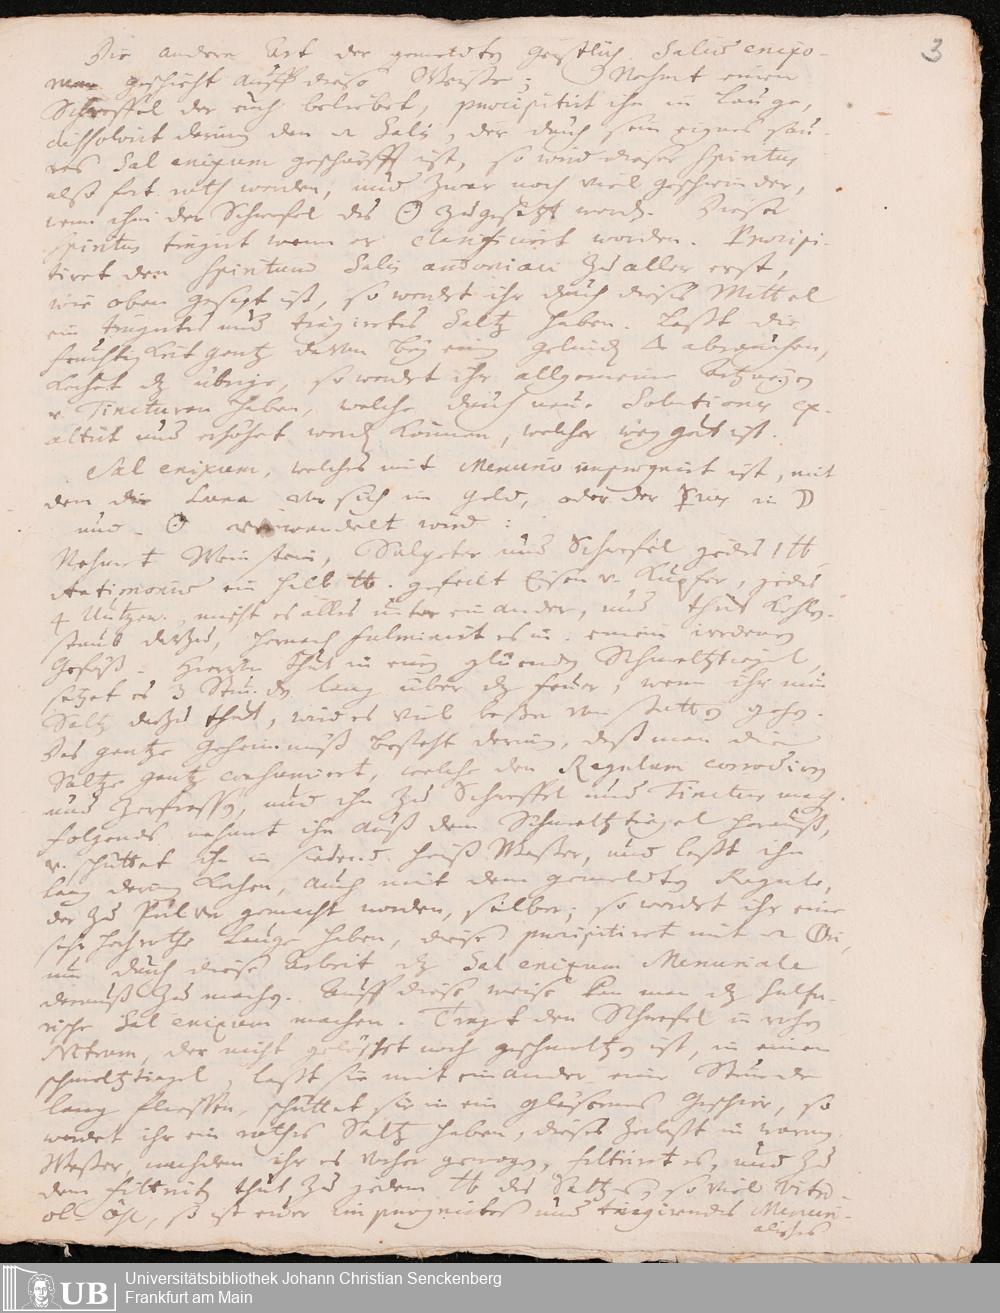 3
Die andere Art der gemeldten geistlich Salis enixo-
rum geschicht auff diese Weise: Nehmt einen
Schweffel der euch beliebet, præcipitirt ihn in Lauge,
dissolvirt darin den Salis, der durch sein eignes sau
res Sal enixum geschärfft ist, so wird dieser Spiritus
alß fort roth werden, und zwar noch viel geschwinder,
wenn ihm der Schwefel des ☉ zugesetzt werd. Dieser
Spiritus tingirt wenn er clarificirt worden. Præcipi-
tiret den Spiritum Salis zu aller erst,
wie oben gesagt ist, so werdet ihr durch dieses Mittel
ein tingirtes und tingirendes Saltz haben. Laßt die
feuchtigkeit gantz davon bey einem gelinden abrauchen,
kochet dz übrige, so werdet ihr allgemeine Artzneyen
v. Tincturen haben, welche durch neue Solutiones ex-
altirt und erhöhet werden können, welcher weg gut ist.
Sal enixum, welches mit impregnirt ist, mit
dem die Luna sich in Gold, oder der in ☽
und ☉ verwandelt wird:
Nehmet Weinstein, Salpeter und Schwefel jedes 1 ℔
Antimonii ein halb ℔. gefeilt Eisen v. Kupfer, jedes
4 Untzen, mischt es alles unter einander, und thut Kohlen-
staub darzu, hernach fulminirt es in einem irrdenen
Gefäß. Hierin thut in einen glüenden Schmeltztiegel,
setzet es 3 Stunden lang über dz feuer, wenn ihr nun
Saltz darzu thut, wird es viel beßer von statten gehen.
Das gantze Geheimnuß besteht darin, daß man die
Saltze gantz consumirt, welche den Regulum corrodiren
und zerfressen, und ihn zu Schweffel und Tinctur machen.
folgends nehmt ihn auß dem Schmeltztiegel herauß,
v. schüttet ihn in siedend heiß Wasser, und laßt ihn
lang darin kochen, auch mit dem gemeldten Regulo,
der zu Pulver gemacht worden, selber; so werdet ihr eine
sehr hochrothe Lauge haben, diese præcipitiret mit
um durch diese Arbeit dz Sal enixum
darauß zu machen. Auff diese weise kan man dz Sulfu-
rische Sal enixum machen. Traget den Schwefel in
Nitrum, der nicht gelöschet noch geschmoltzen ist, in einen
schmeltztiegel, laßt sie mit einander eine Stunde
lang fliessen, schüttet sie in ein gläsernes Geschirr, so
werdet ihr ein rothes Saltz haben, dieses zerlaßt in warm
Wasser, nachdem ihr es vorher gewogen, filtrirt es, und zu
dem filtrirten thut zu jedem ℔ des Saltzes, so viel Vitri-
ol Öhl, so ist euer impregnirtes und tingirendes
alisches
UB
Universitätsbibliothek Johann Christian Senckenberg
Frankfurt am Main